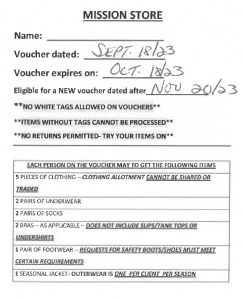 MISSION STORE
Name:
Voucher dated: SEPT. 18/23
Voucher expires on: OCT. 18/23
Eligible for a NEW voucher dated after NOV 20/23
**NO WHITE TAGS ALLOWED ON VOUCHERS**
**ITEMS WITHOUT TAGS CANNOT BE PROCESSED**
**NO RETURNS PERMITTED- TRY YOUR ITEMS ON**
EACH PERSON ON THE VOUCHER MAY TO GET THE FOLLOWING ITEMS
5 PIECES OF CLOTHING – CLOTHING ALLOTMENT CANNOT BE SHARED OR
TRADED
2 PAIRS OF UNDERWEAR
2 PAIRS OF SOCKS
2 BRAS – AS APPLICABLE - DOES NOT INCLUDE SLIPS/TANK TOPS OR
UNDERSHIRTS
1 PAIR OF FOOTWEAR – REQUESTS FOR SAFETY BOOTS/SHOES MUST MEET
CERTAIN REQUIREMENTS
1 SEASONAL JACKET- OUTERWEAR IS ONE PER CLIENT PER SEASON